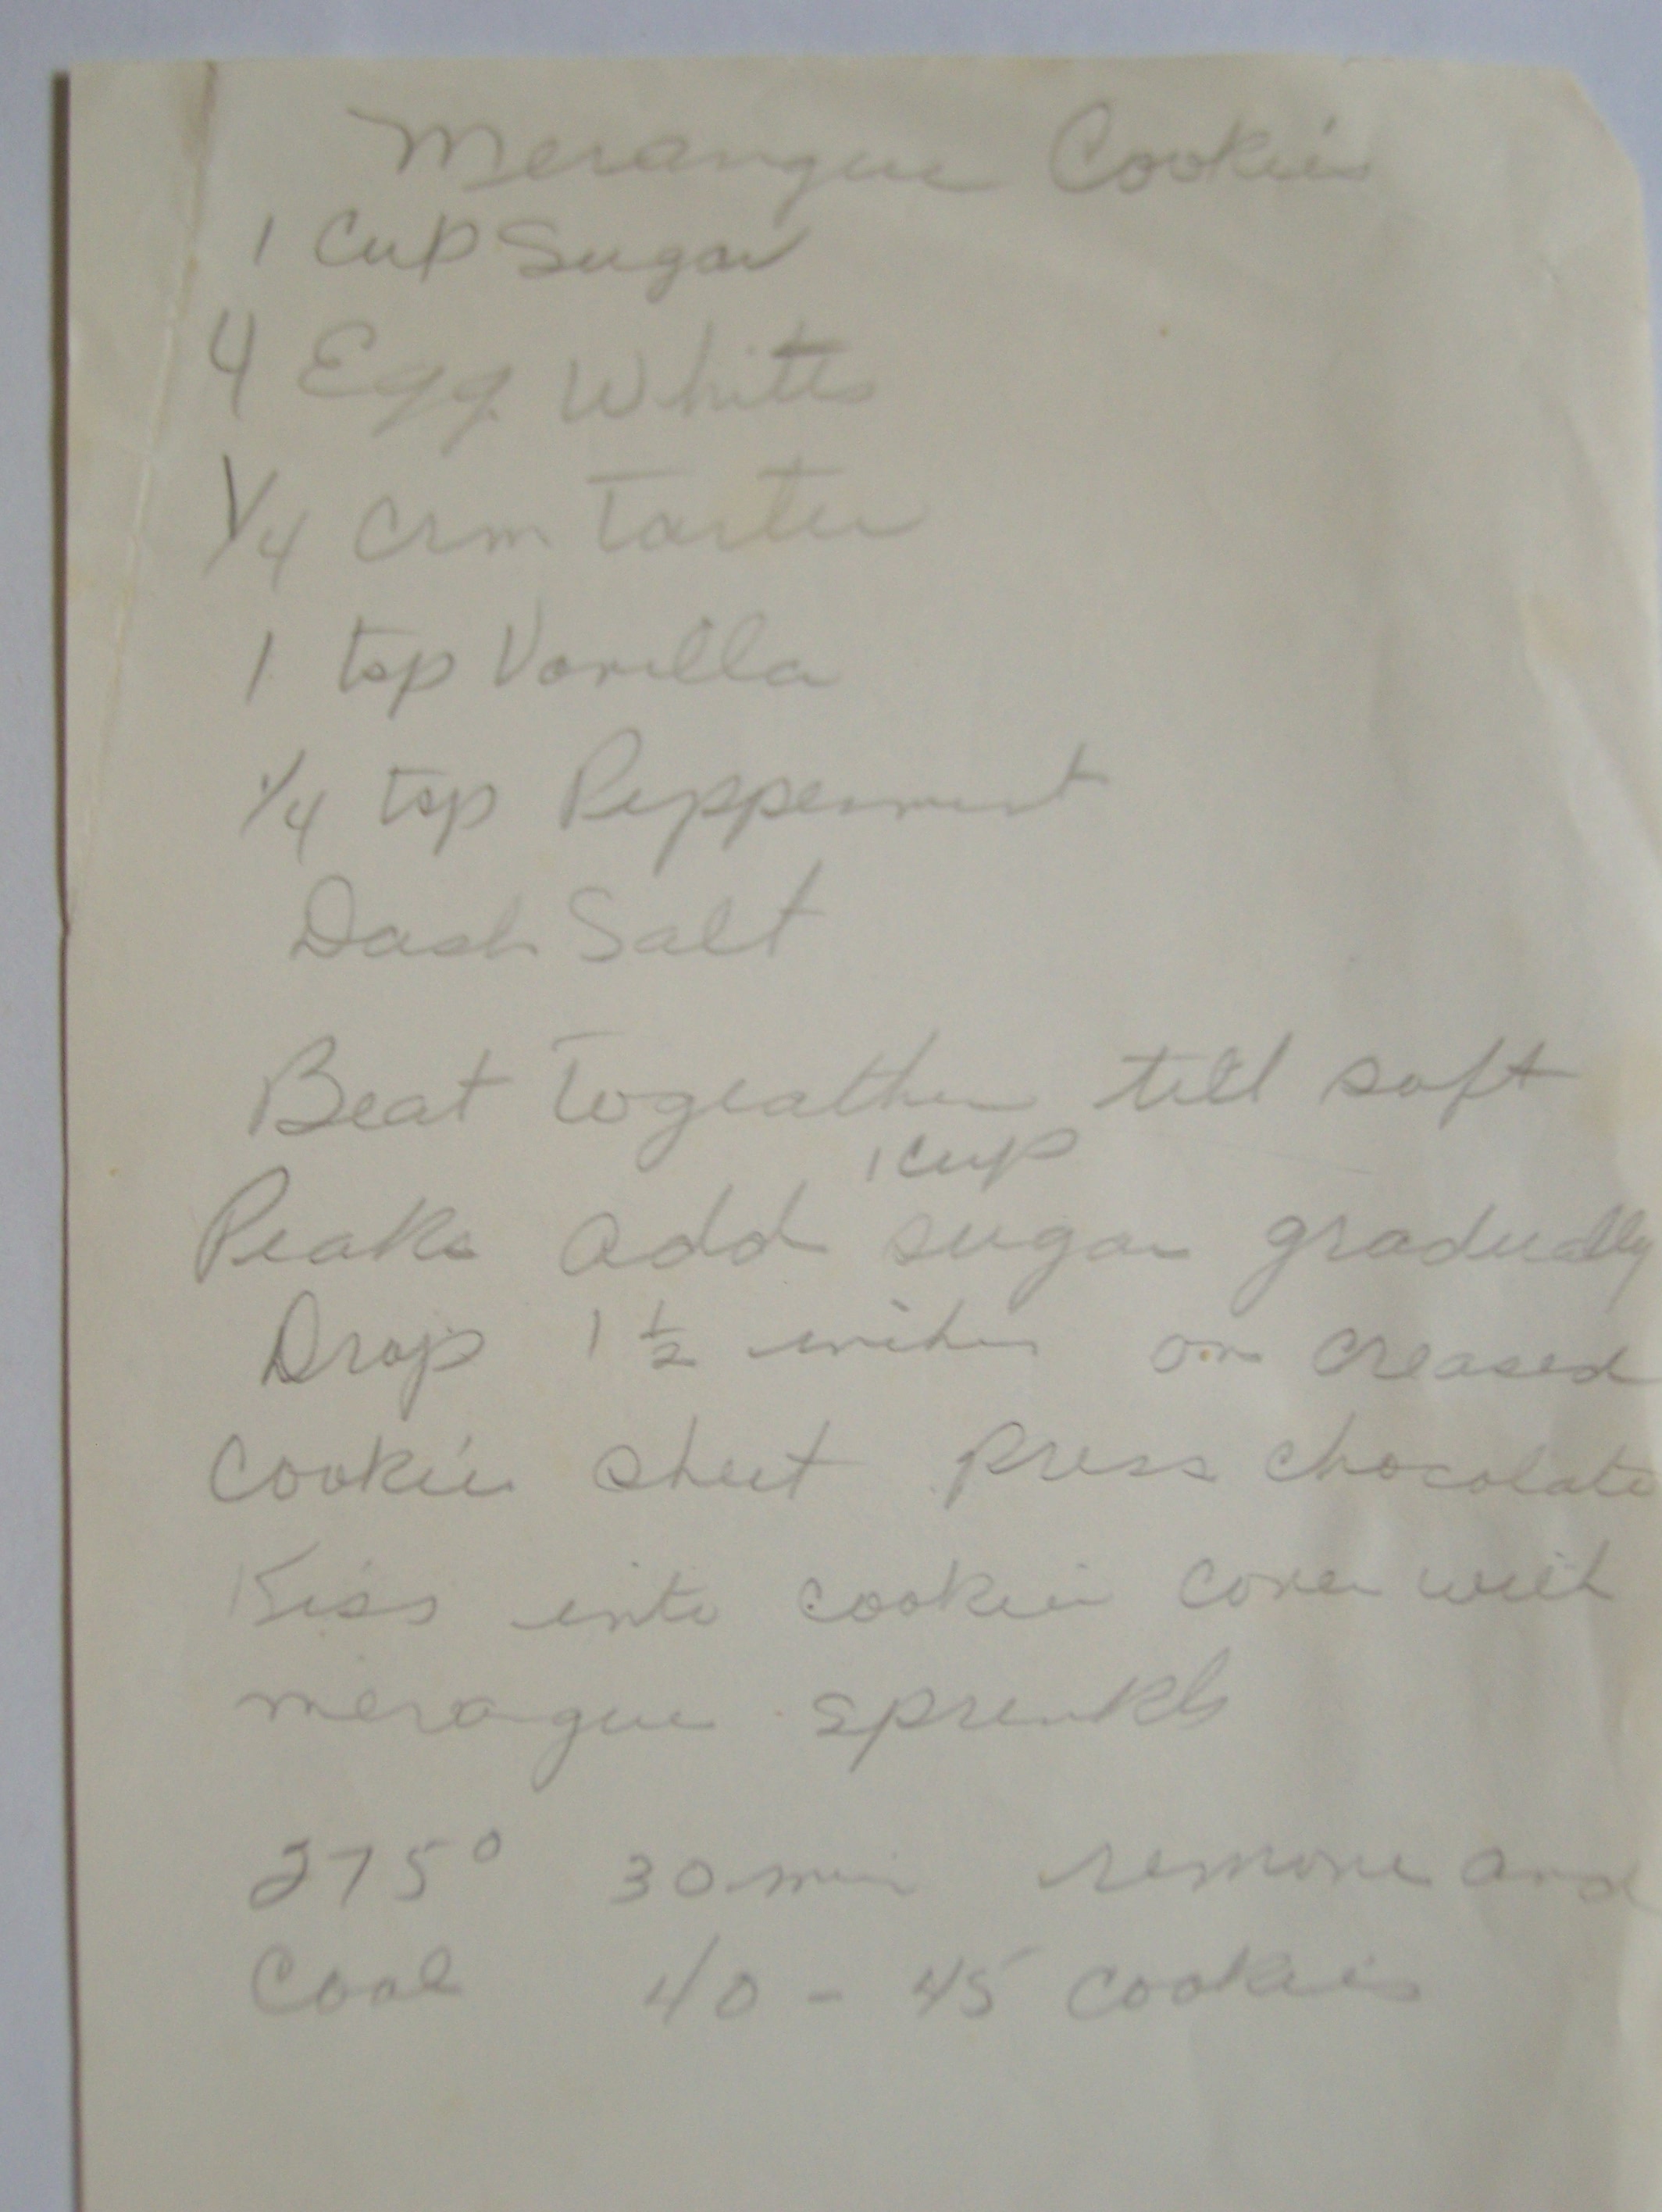 Merangue Cookies
1 Cup Sugar
4 Egg Whites
1/4 Crm Tarter
1 tsp Vanilla
1/4 tsp Peppermint
Dash Salt
Beat Togeather till soft
1 cup
Peaks add sugar gradually
Drop 1 1/2 inches on creased
cookie sheet press chocolate
Kiss into cookie cover with
merague sprinkls
275° 30 min remove and
Cool 40 - 45 cookies